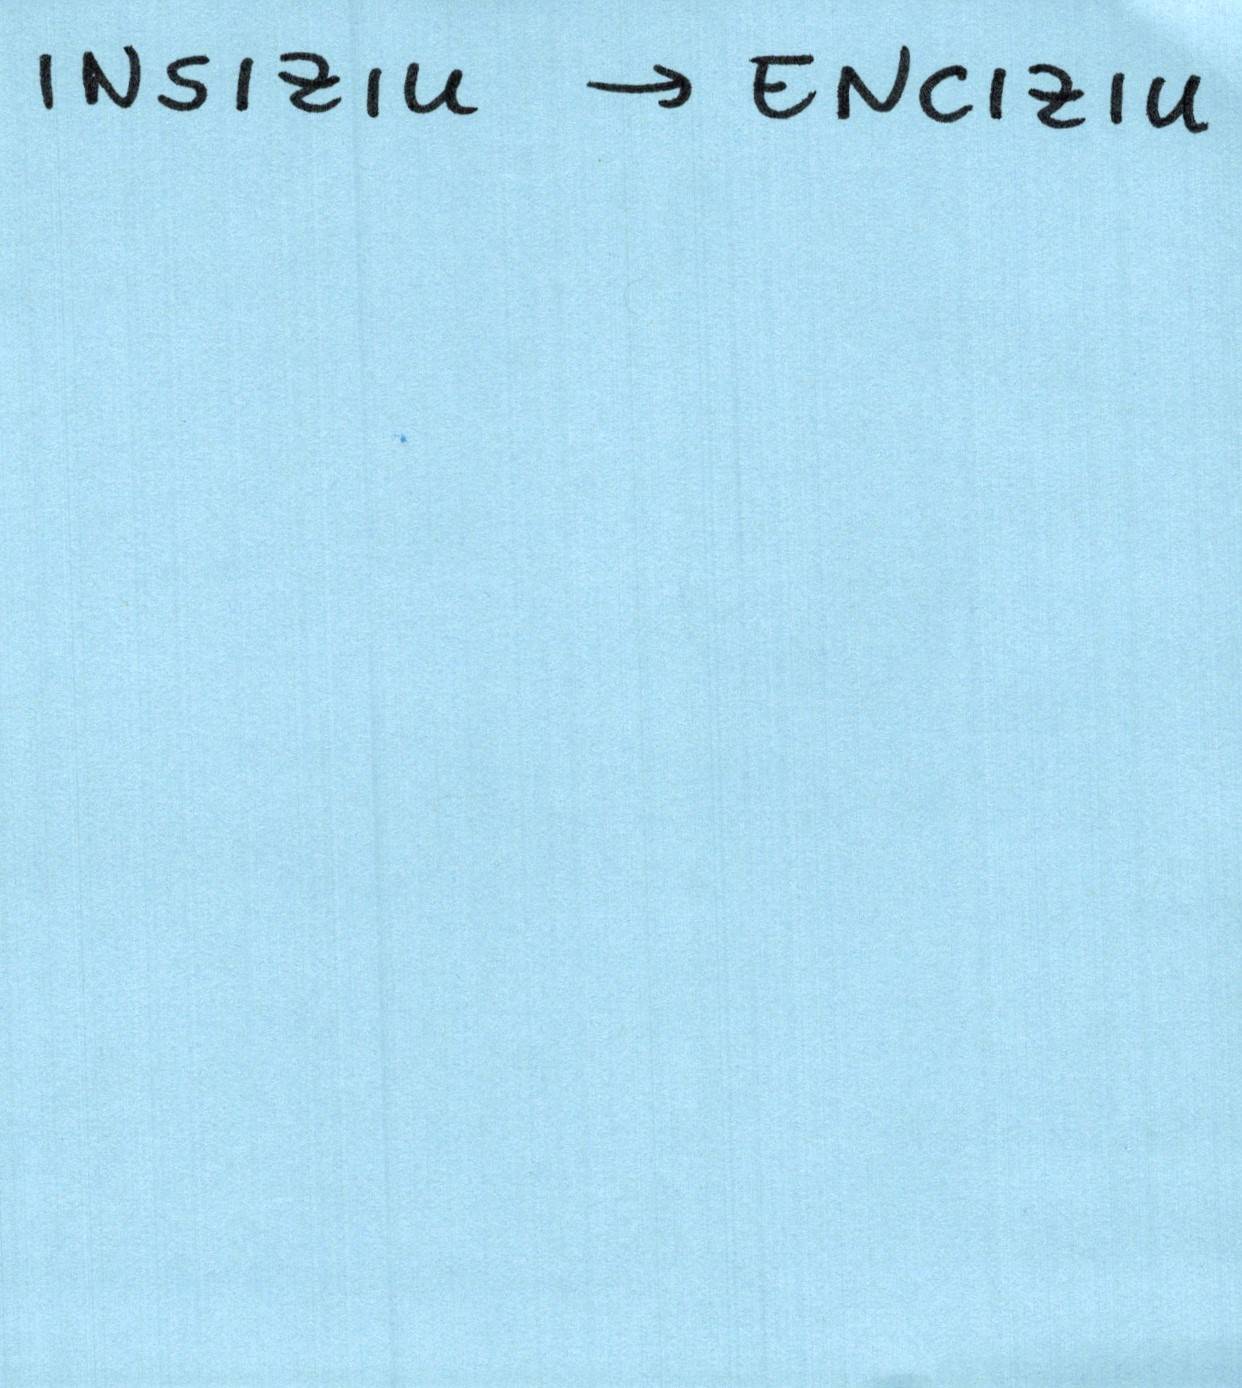 INSIZIU → ENCIZIU